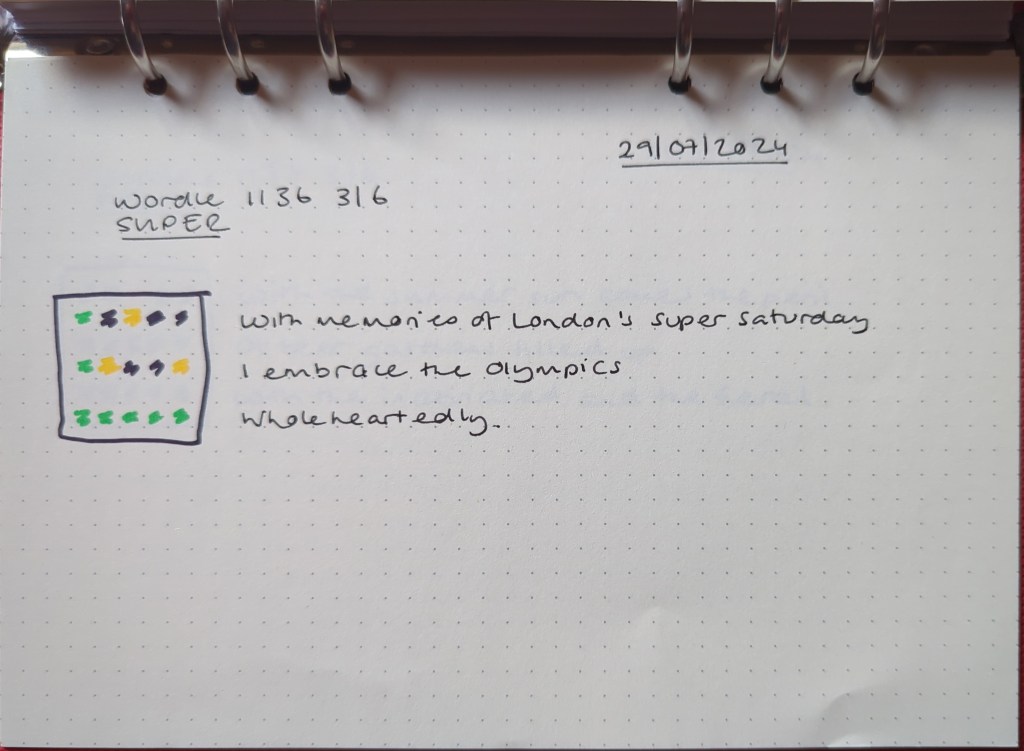 29/07/2024
Wordle 1136 3/6
SUPER
With memories of London's super saturday
I embrace the Olympics
Wholeheartedly.